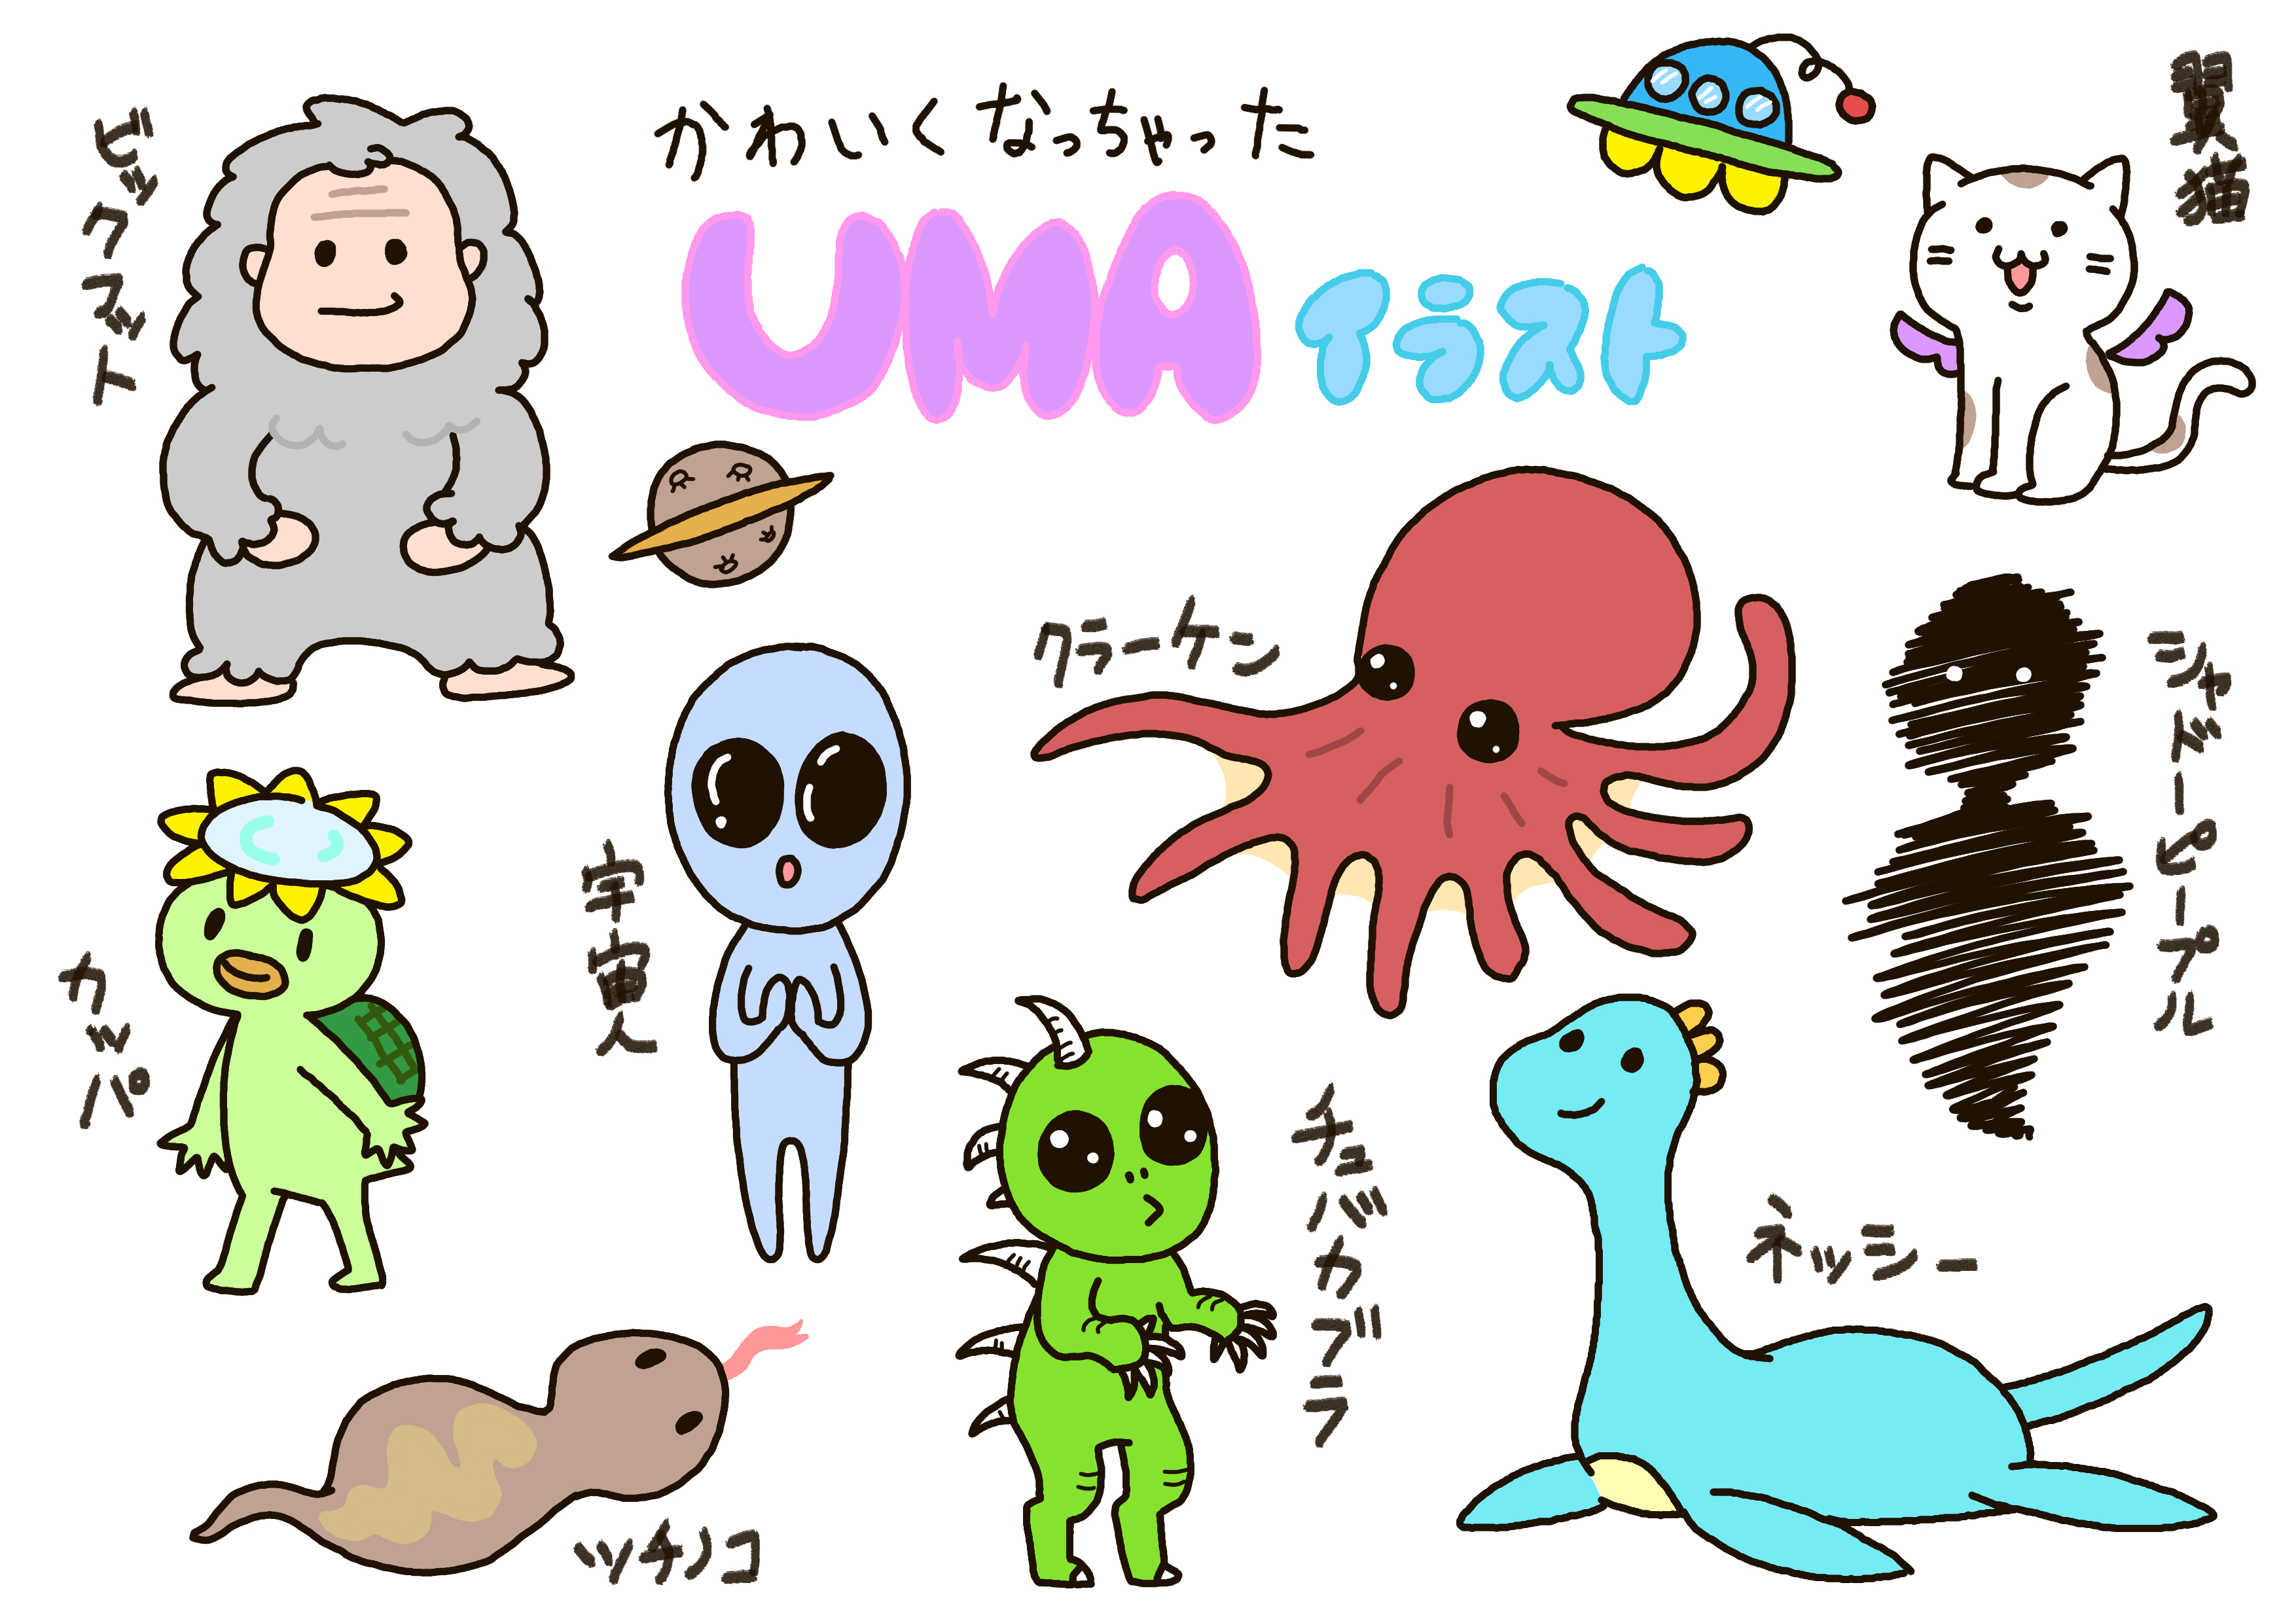 かわいくなっちゃった
UMAイラスト
ビックフット
翼猫
クラーケン
シャドーピープル
宇宙人
カッパ
チュパカブラ
ネッシー
ツチノコ